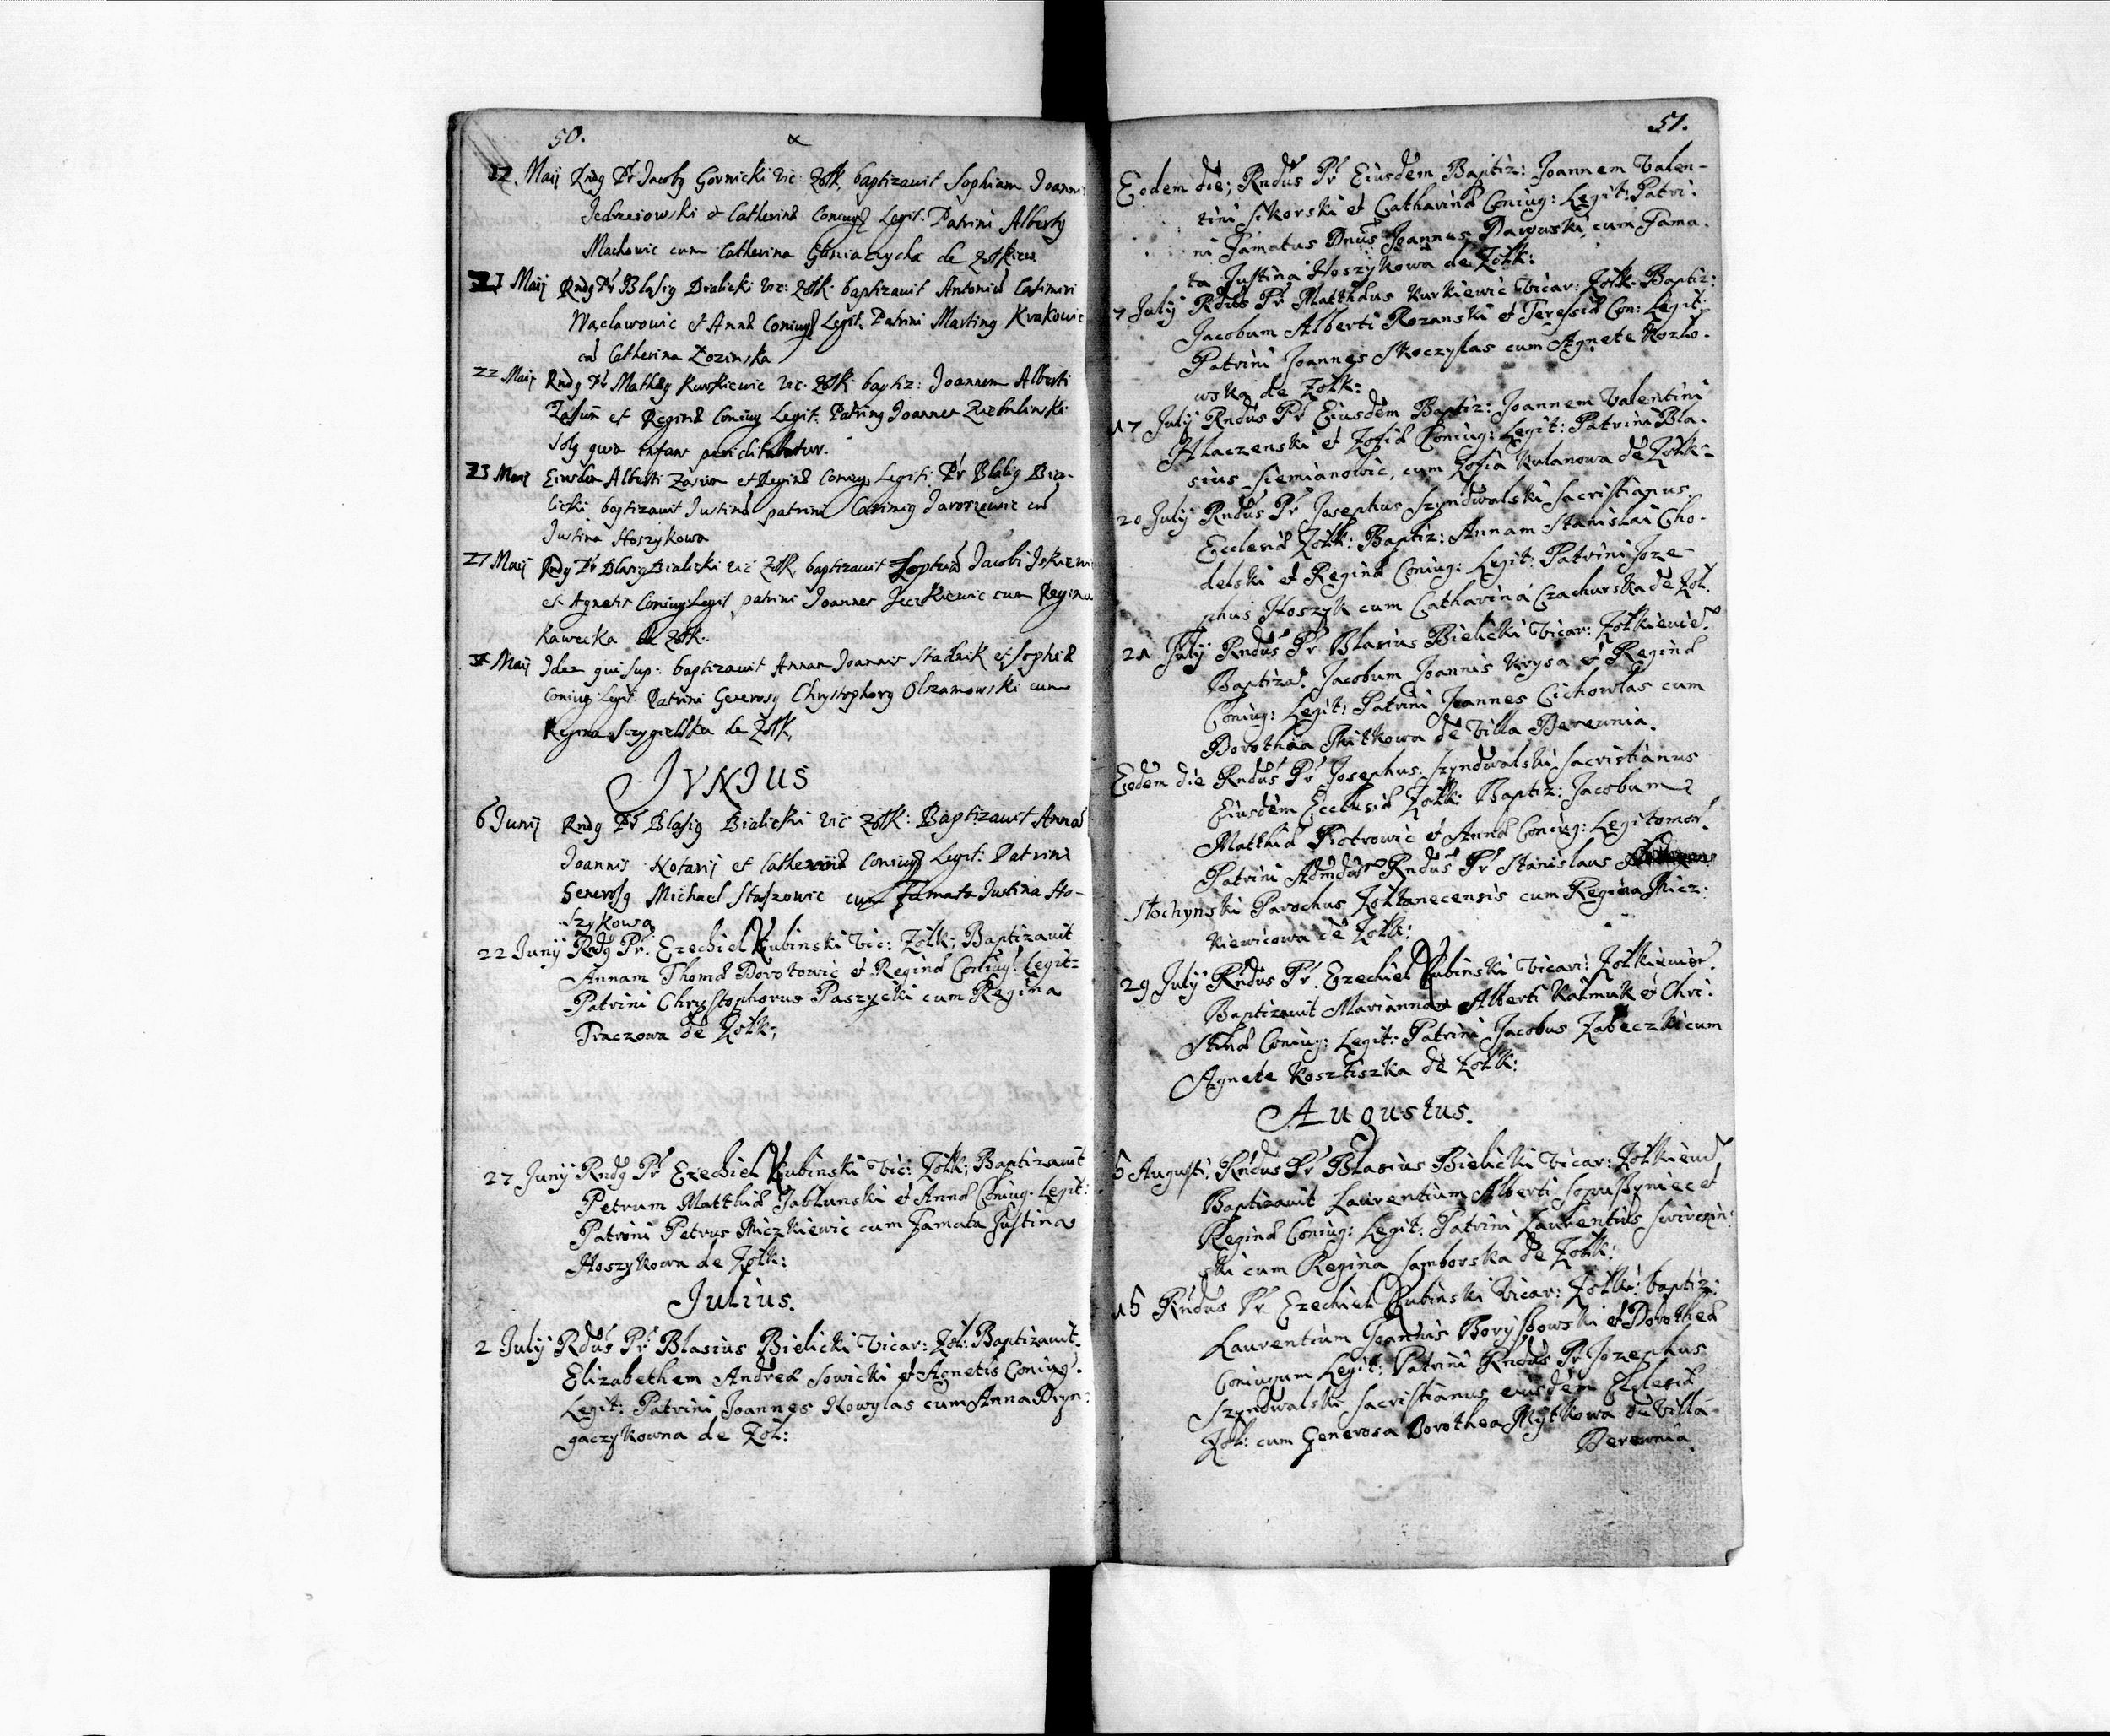 50.
12. Maij Rndg Pr Jacobg Gornicki vic: Zolk. baptizavit Sophiam Joannis
Jedrzeiowski et Catherinæ Coniug Legit. Patrini Albertg
Machowic cum Catherina de Zolkiew
21 Maij Rndg Pr Blasig Bialicki vic: Zolk. baptizavit Antoniū Casimiri
Waclawowic et Annæ Coniug Legit. Patrini Marting Krakowic
cū Catherina Lozinska
22 Maij Rndg Pr Mathęg Kurkiewic vic. Zolk. baptiz: Joannem Alberti
Zasun et Reginæ Coniug Legit. Patring Joannes
Solg quia infans periclitabatur.
23 Maij Eiusdem Alberti Zasun et Reginæ Coniug Legiti. Pr Blasig Bia-
licki baptizavit Justinā patrini Casimig Jaroszewic cū
Justina Hoszykowa
27 Maij Rndg Pr Blasig Bialicki vic Zolk. baptizavit Sophiā Jacobi
et Agnetis Coniug Legit patrini Joannes cum Regina
Kawecka de Zolk.
Maij Idem qui sup: baptizavit Annam Joannis Stadnik et Sophiæ
Coniug Legit. Patrini Generosg Chrystophorg Olszamowski cum
Regina Sczygielska de Zolk.
JVNIUS
6 Junij Rndg Pr Blasig Bialicki vic Zolk: Baptizavit Annā
Joannis Notarij et Catherinæ Coniug Legit. Patrini
Generosg Michael Staszowic cum Famata Justina Ho-
szykowa
22 Junij Rndg Pr. Ezechiel Rubinski vic: Zolk; Baptizavit
Annam Thomæ Dorotowic et Reginæ Coniug: Legit:
Patrini Chrystophorus Paszycki cum Regina
Traczowa de Zolk;
27 Junij Rndg Pr Ezechiel Rubinski vic: Zolk; Baptizavit
Petrum Matthiæ Jablunski et Annæ Coniug. Legit:
Patrini Petrus Miczkiewic cum Famata Justina
Hoszykowa de Zolk:
Julius.
2 July Rdus Pr Blasius Bielicki Vicar: Zol: Baptizavit
Elizabethem Andreæ Sowicki et Agnetis Coniug:
Legit: Patrini Joannes Nowylas cum Anna Dryn:
gaczykowna de Zol:
51.
Eodem die; Rndus Pr Eiusdem Baptiz: Joannem Valen-
tini Sikorski et Catharinæ Coniug: Legit: Patri:
ni Famatus Dnus Joannes Darowski cum Fama.
ta Justina Hoszykowa de Zolk:
7 July Rdus Pr Matthæus Kurkiewic Vicar: Zolk. Baptiz:
Jacobum Alberti Rozanski et Teresiæ Con: Legit:
Patrini Joannes Skoczylas cum Agnete Kozlo.
wska de Zolk:
17 July Rndus Pr Eiusdem Baptiz: Joannem Valentini
Hlaczenski et Zofiæ Coniug: Legit: Patrini Bla.
sius Siemianowic, cum Zofia Kulanowa de Zolk:
20 July Rndus Pr Josephus Szyndwalski Sacristianus
Ecclesiæ Zolk: Baptiz: Annam Stanislai Cho.
delski et Reginæ Coniug: Legit: Patrini Joze-
phus Hoszyk cum Catharina Czachurska de Zol.
21 July Rndus Pr Blasius Bielicki Vicar: Zolkievie.
Baptiza. Jacobum Joannis Krysa et Reginæ
Coniug: Legit: Patrini Joannes Cichowlas cum
Dorothea Mitkowa de Villa Derewnia.
Eodem die Rndus Pr Josephus Szyndwalski Sacristianus
Eiusdem Ecclesiæ Zolk: Baptiz: Jacobum
Matthiæ Piotrowic et Annæ Coniug: Legitomor.
Patrini Admdus Rndus Pr Stanislaus
Stochynski Parochus Zoltanecensis cum Regina Micz:
kiewicowa de Zolk:
29 July Rndus Pr. Ezechiel Rubinski Vicari: Zolkievie.
Baptizavit Mariannam Alberti Kalmuk et Chri:
stinæ Coniug: Legit: Patrini Jacobus Zabeczki cum
Agnete Kosztiszka de Zolk:
Augustus.
5 Augusti; Rndus Pr Blasius Bielicki Vicar: Zolkievie
Baptizavit Laurentium Alberti Soprszyniec et
Reginæ Coniug: Legit: Patrini Laurentius Swirczin:
ski cum Regina Samborska de Zolk:
15 Rndus Pr Ezechiel Rubinski Vicar: Zolki: baptiz:
Laurentium Joannis Borysowski et Dorotheæ
Coniugum Legit: Patrini Rndus Pr Jozephus
Szyndwalski Sacristianus eiusdem Ecclesiæ
Zol: cum Generosa Dorothea Mytkowa de Villa
Derewnia.